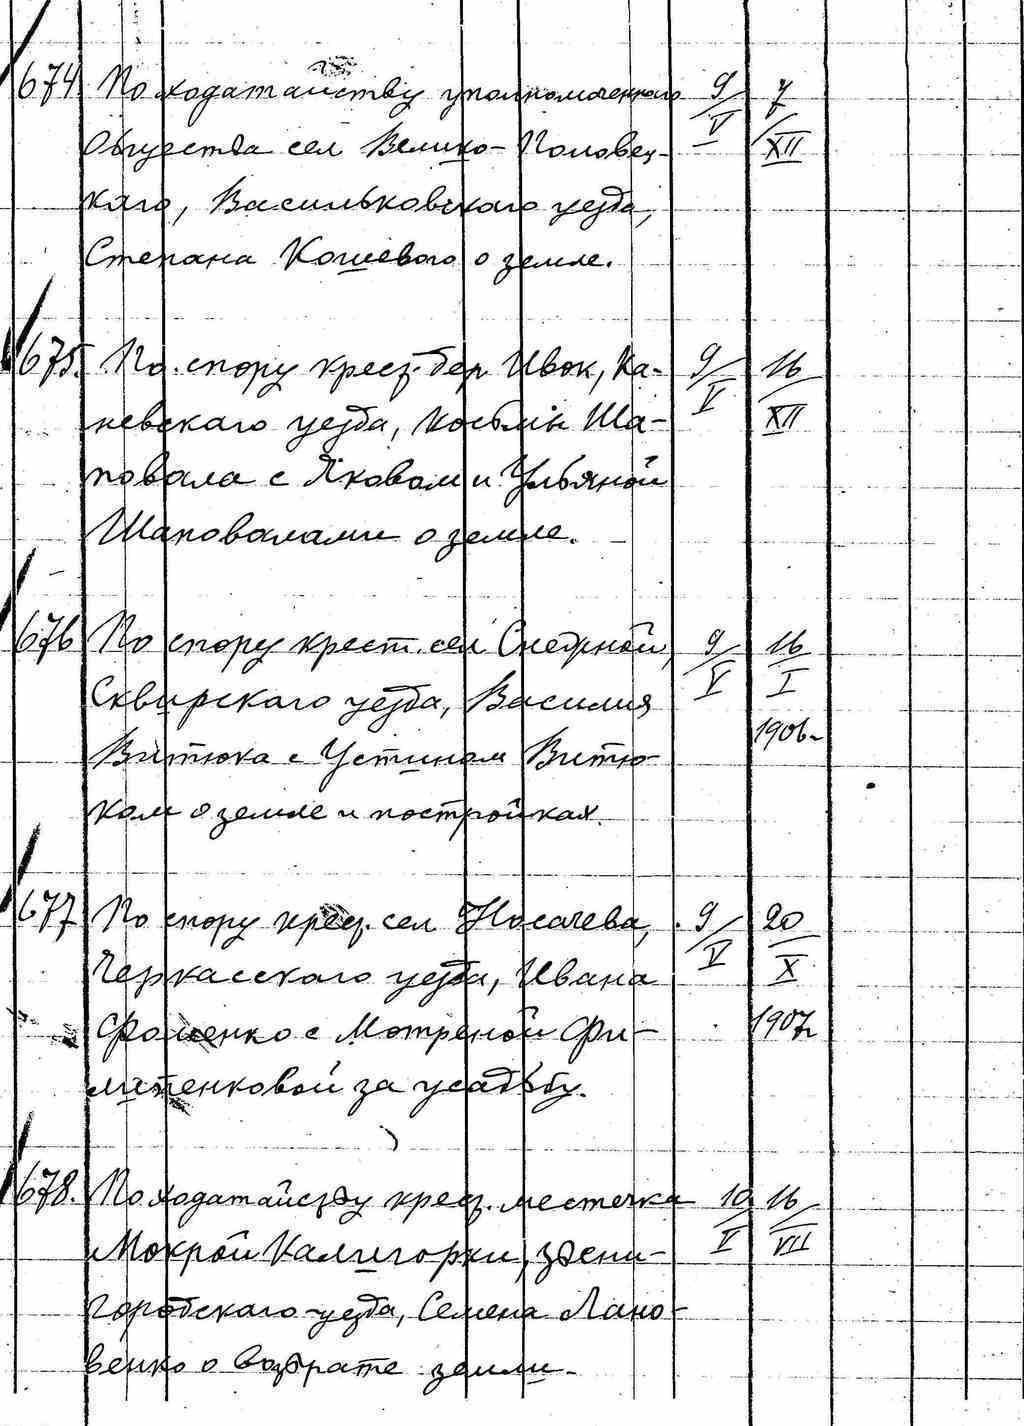 674 По ходатайству уполномоченного 9/V 7/XII
Общества сел Велико-Половец-
каго, Васильковскаго уезда,
Степана Кошевого о земле.
675. По спору крест. дер Ивок, Ка- 9/V 16/XII
невскаго уезда, Косьмы Ша-
повала с Яковом и Ульяной
Шаповалами о земле.
676 По спору крест. сел Снежной, 9/V 16/I
Сквирскаго уезда, Василия 1906г
Витюка с Устином Витю-
ком о земле и постройках.
677 По спору крест. сел Носачева, 9/V 20/X
Черкасскаго уезда, Ивана
Фоменко с Мотреной Фи- 1907г
липенковой за усадьбу.
678. По ходатайству крест. местечка 10/V 16/VII
Мокрой Калигорки, Звени-
городскаго уезда, Семена Лано-
венко о возврате земли.